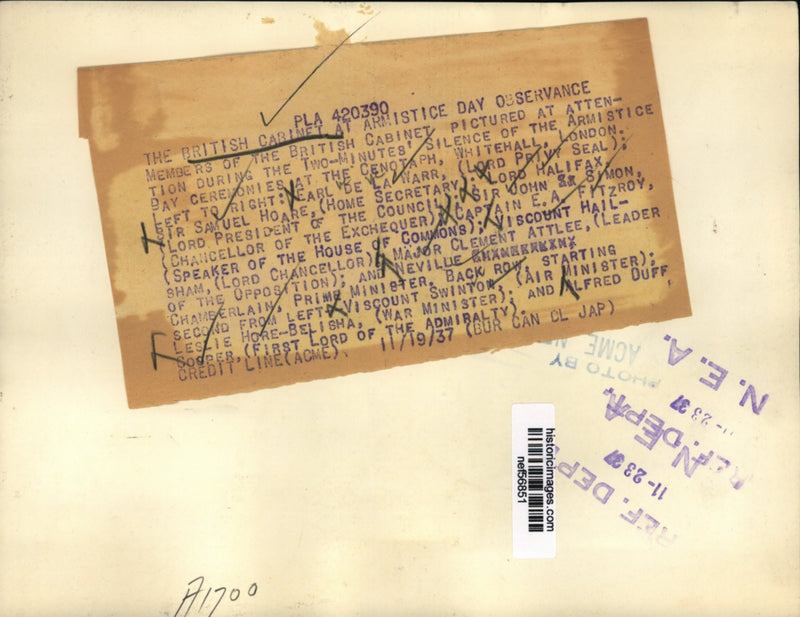 PLA 420390
THE BRITISH CABINET AT ARMISTICE DAY OBSERVANCE
MEMBERS OF THE BRITISH CABINET PICTURED AT ATTEN-
TION DURING THE TWO-MINUTES' SILENCE OF THE ARMISTICE
DAY CEREMONIES AT THE CENOTAPH, WHITEHALL, LONDON.
LEFT TO RIGHT: EARL DE LA WARR, (LORD PRIVY SEAL);
SIR SAMUEL HOARE, (HOME SECRETARY); LORD HALIFAX,
(LORD PRESIDENT OF THE COUNCIL); SIR JOHN SIMON,
(CHANCELLOR OF THE EXCHEQUER); CAPTAIN E.A. FITZROY,
(SPEAKER OF THE HOUSE OF COMMONS); VISCOUNT HAIL-
SHAM, (LORD CHANCELLOR); MAJOR CLEMENT ATTLEE, (LEADER
OF THE OPPOSITION); AND NEVILLE
CHAMBERLAIN, PRIME MINISTER. BACK ROW, STARTING
SECOND FROM LEFT: VISCOUNT SWINTON, (AIR MINISTER);
LESLIE HORE-BELISHA, (WAR MINISTER); AND ALFRED DUFF
COOPER, (FIRST LORD OF THE ADMIRALTY).
CREDIT LINE (ACME). 11/19/37 (BUR CAN CL JAP)
PHOTO BY
ACME
N. E. A.
REF. DEPT.
11-23 37
N. E. A.
REF. DEPT.
11-23 37
historicimages.com
nef56851
A1700